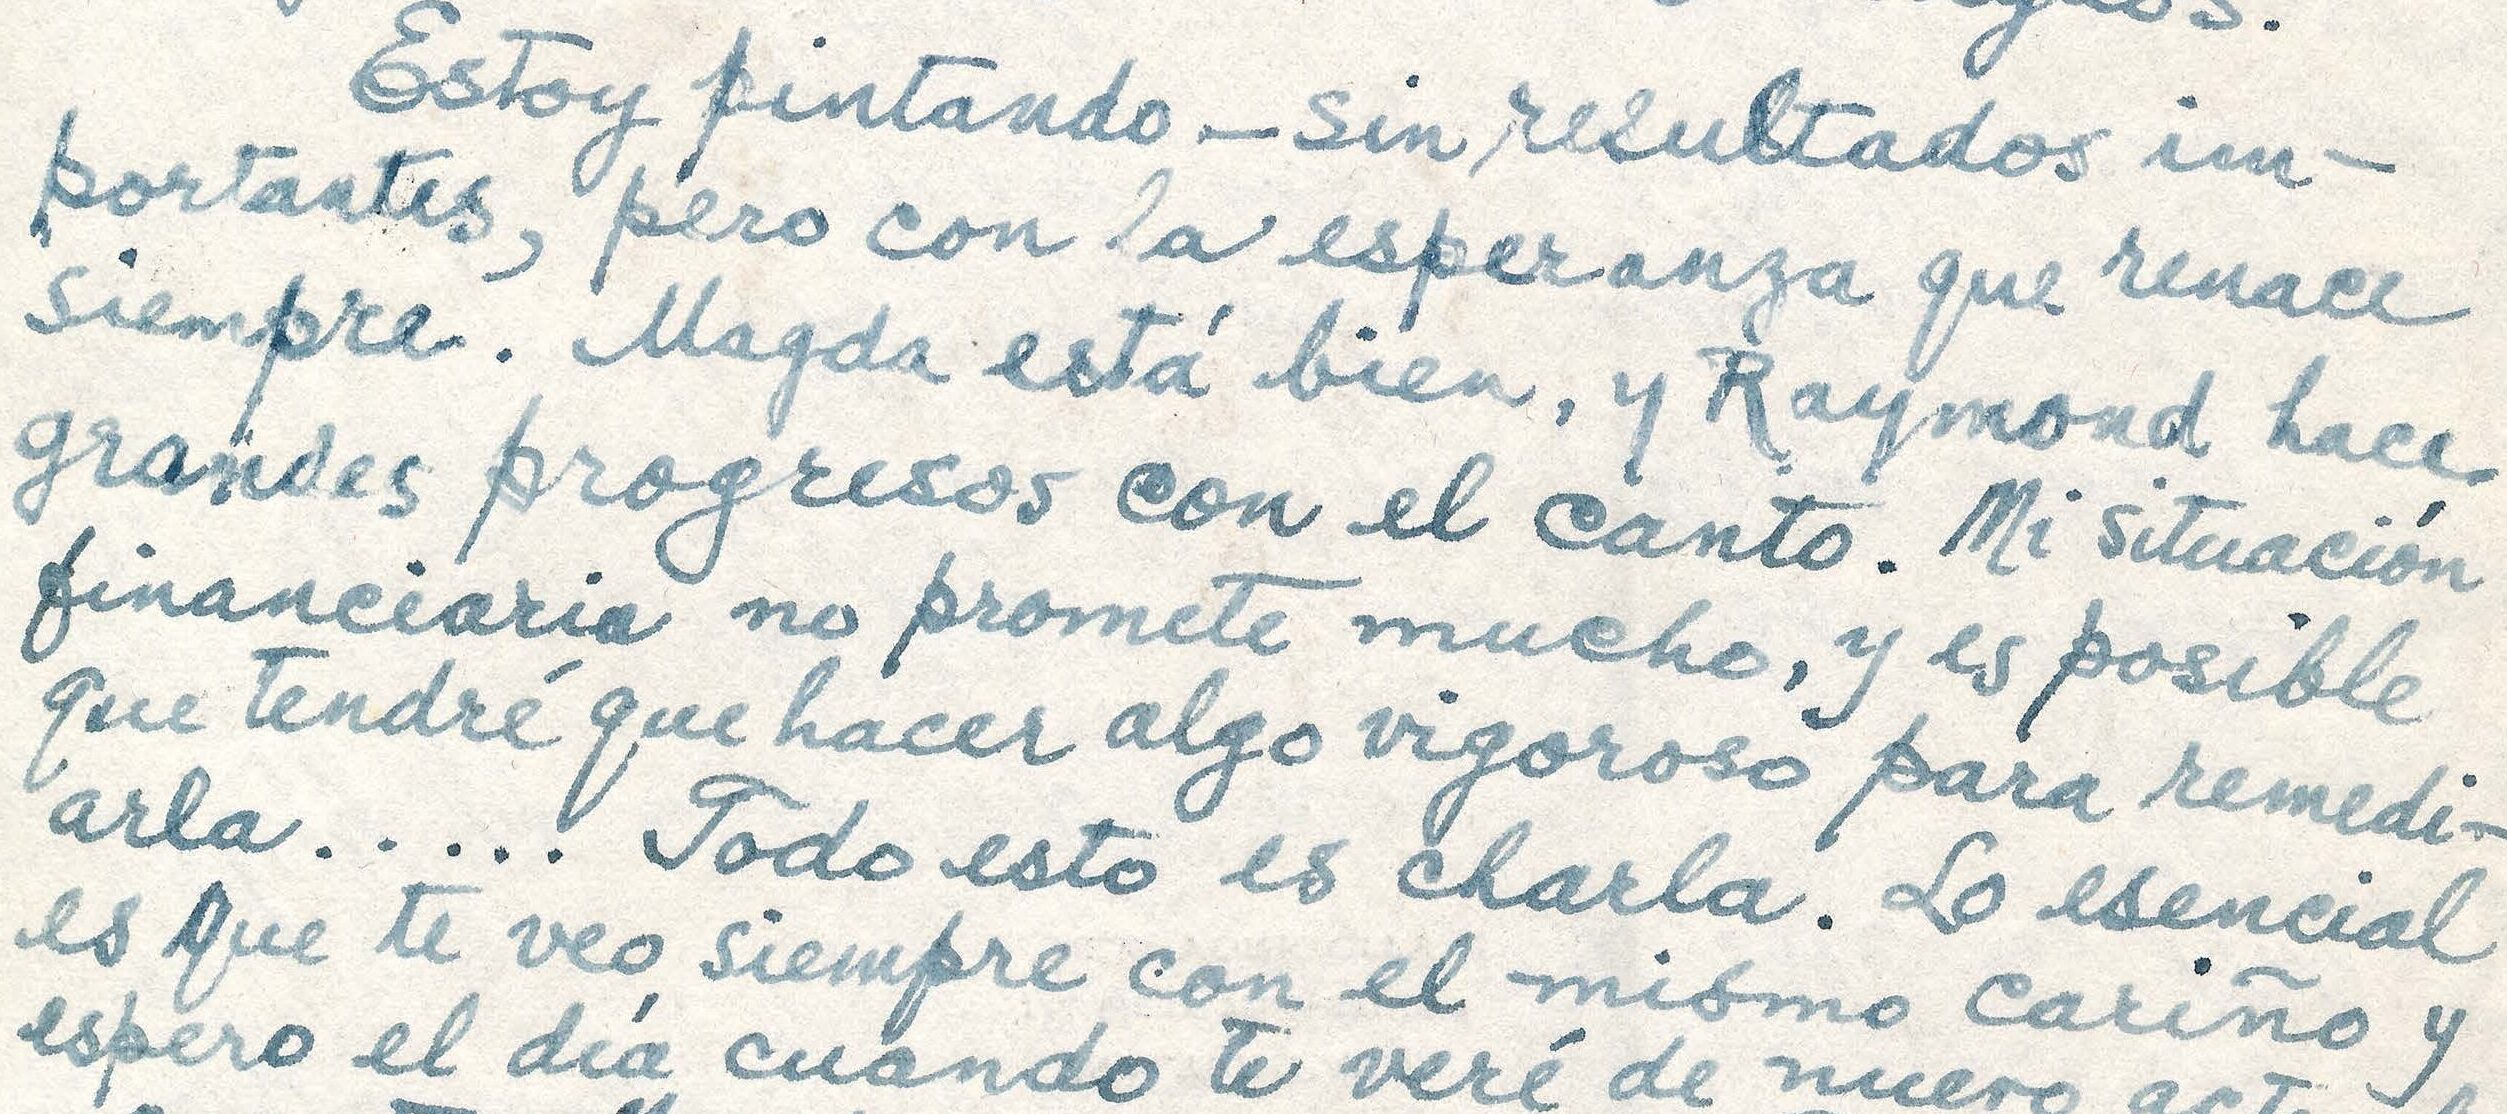 Estoy pintando — sin resultados im-
portantes, pero con la esperanza que renace
siempre. Magda está bien, y Raymond hace
grandes progresos con el canto. Mi situación
financiaria no promete mucho, y es posible
que tendré que hacer algo vigoroso para remedi-
arla ..... Todo esto es charla. Lo esencial
es que te veo siempre con el mismo cariño y
espero el día cuando te veré de nuevo